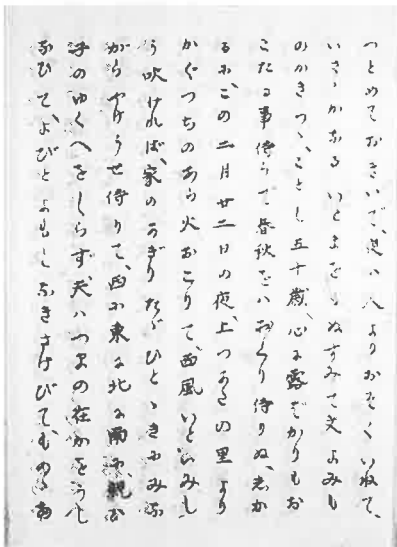 つとめておきいで、夜ハ人よりおそくいねて、
いさゝかなる いとまをもぬすみて文よみも
のかきつゝ、ことし五十歳、心に露ばかりもお
こたる事侍らで春秋をハおくり侍りぬ、しか
るにこの二月廿二日の夜、上つ の里より
かぐつちのあら火おこりて、西風いとはげし
う吹ければ、家のかぎりたゞひとゝきにみな
がらやけうせ侍りて、西に東に北に南に、親ハ
子のゆくへをしらず、夫ハつまの在かをうし
なひて、よびとよもしなきさけびても